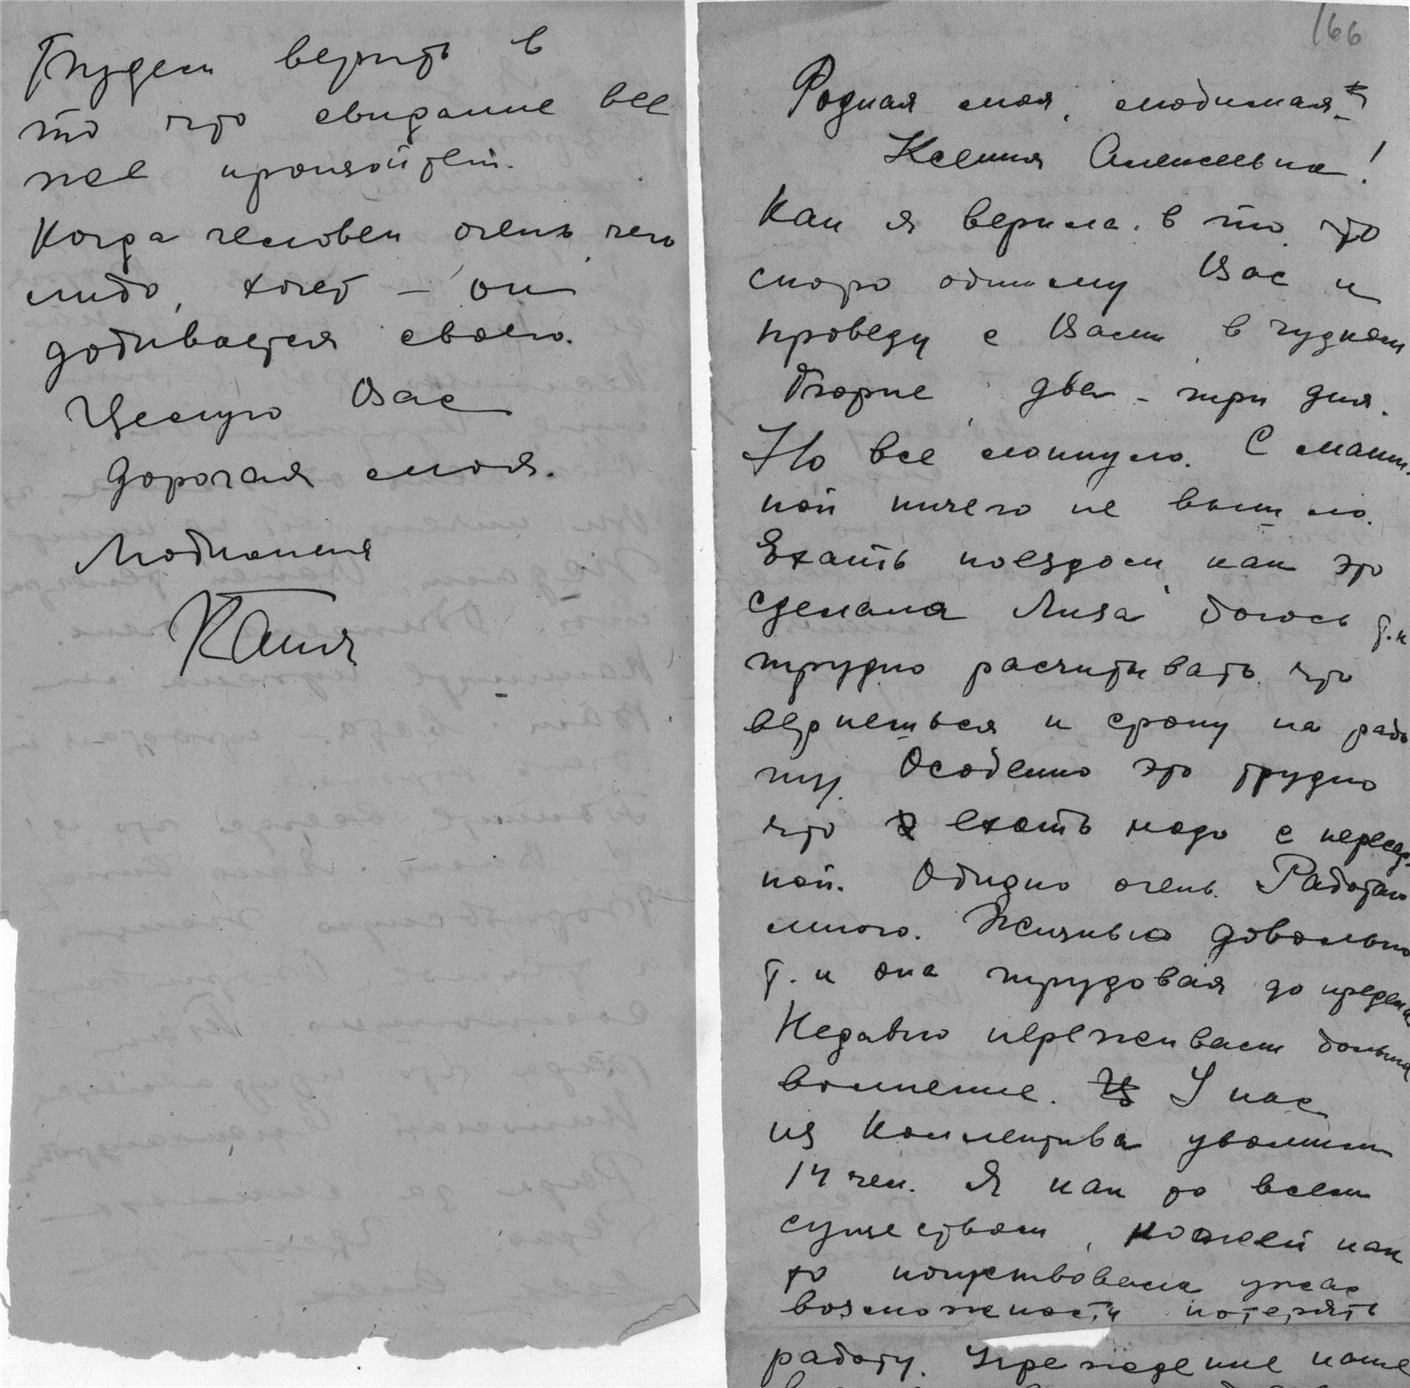 Будем верить в
то что свидание все
же произойдет.
Когда человек очень чего
либо, хочет – он
добивается своего.
Целую Вас
дорогая моя.
Любящая
Катя
166
Родная моя, любимая
Ксения Алексеевна!
Как я верила в то что
скоро обниму Вас и
проведу с Вами в чудном
Быте два - три дня.
Но все лопнуло. С маши-
ной ничего не вышло.
Ехать поездом, как это
сделала Лиза боюсь т.к
трудно расчитывать что
вернешься к сроку на рабо
ту. Особенно это трудно
что ехать надо с пересад-
кой. Обидно очень. Работаю
много. Жизнью довольна
т.к она трудовая до предела
Недавно переживаем большое
волнение. У нас
из коллектива уволили
14 чел. Я как то всем
существом, кожей как
то почувствовала ужас
возможности потерять
работу. Учреждение наше